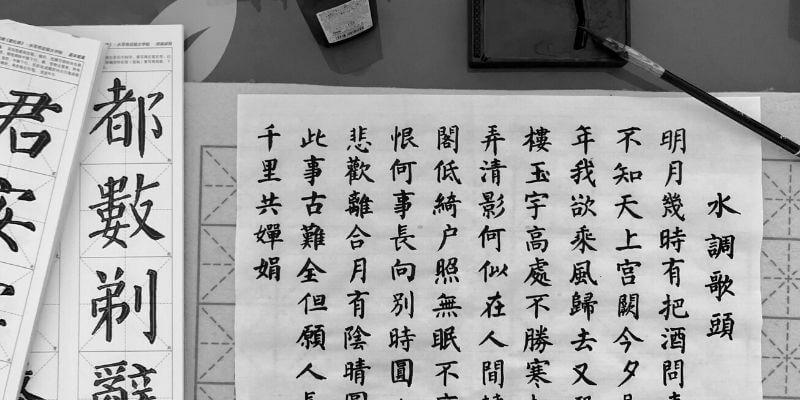 水調歌頭
明月幾時有把酒問
不知天上宮闕今夕
年我欲乘風歸去又
樓玉宇高處不勝寒
弄清影何似在人間
閣低綺户照無眠不
恨何事長向别時圓
悲歡離合月有陰晴圓
此事古難全但願人長
千里共嬋娟
都數剃辭
君安